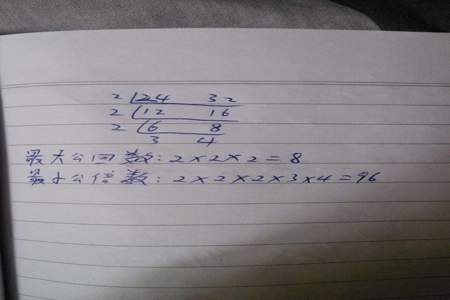 2 24 32
2 12 16
2 6 8
3 4
最大公因数:2×2×2=8
最小公倍数:2×2×2×3×4=96